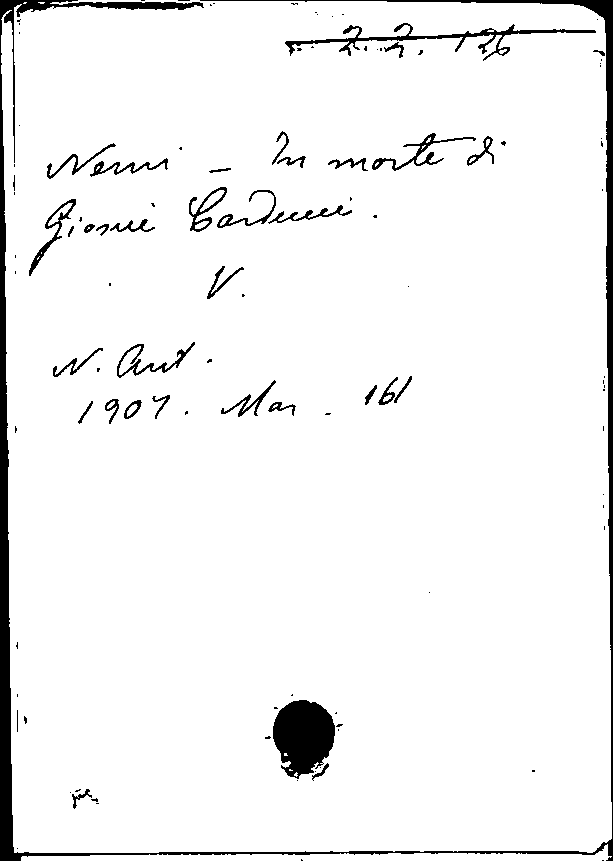 2. 2. 126
Nemi - In morte di
Giosuè Carducci.
V.
N. Ant.
1907. Mar. 161